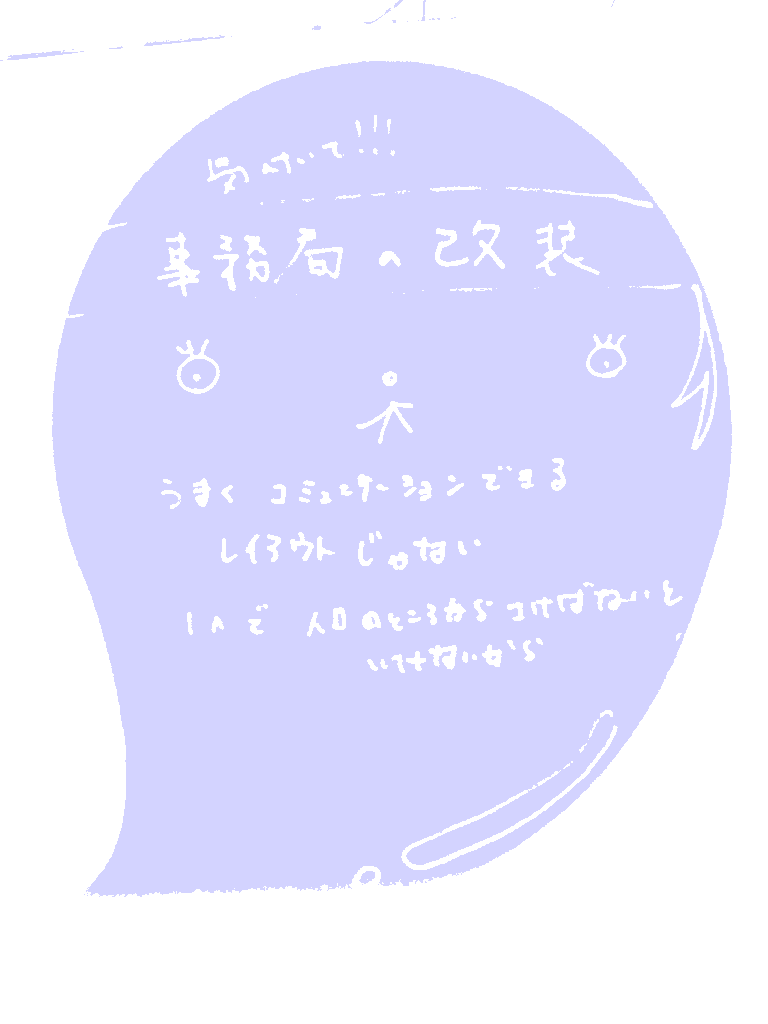 気づいて!!!
事務局の改装
うまく コミュニケーションできる
レイアウトじゃない
1人で 入口のところから 叫ばないと
いけないから